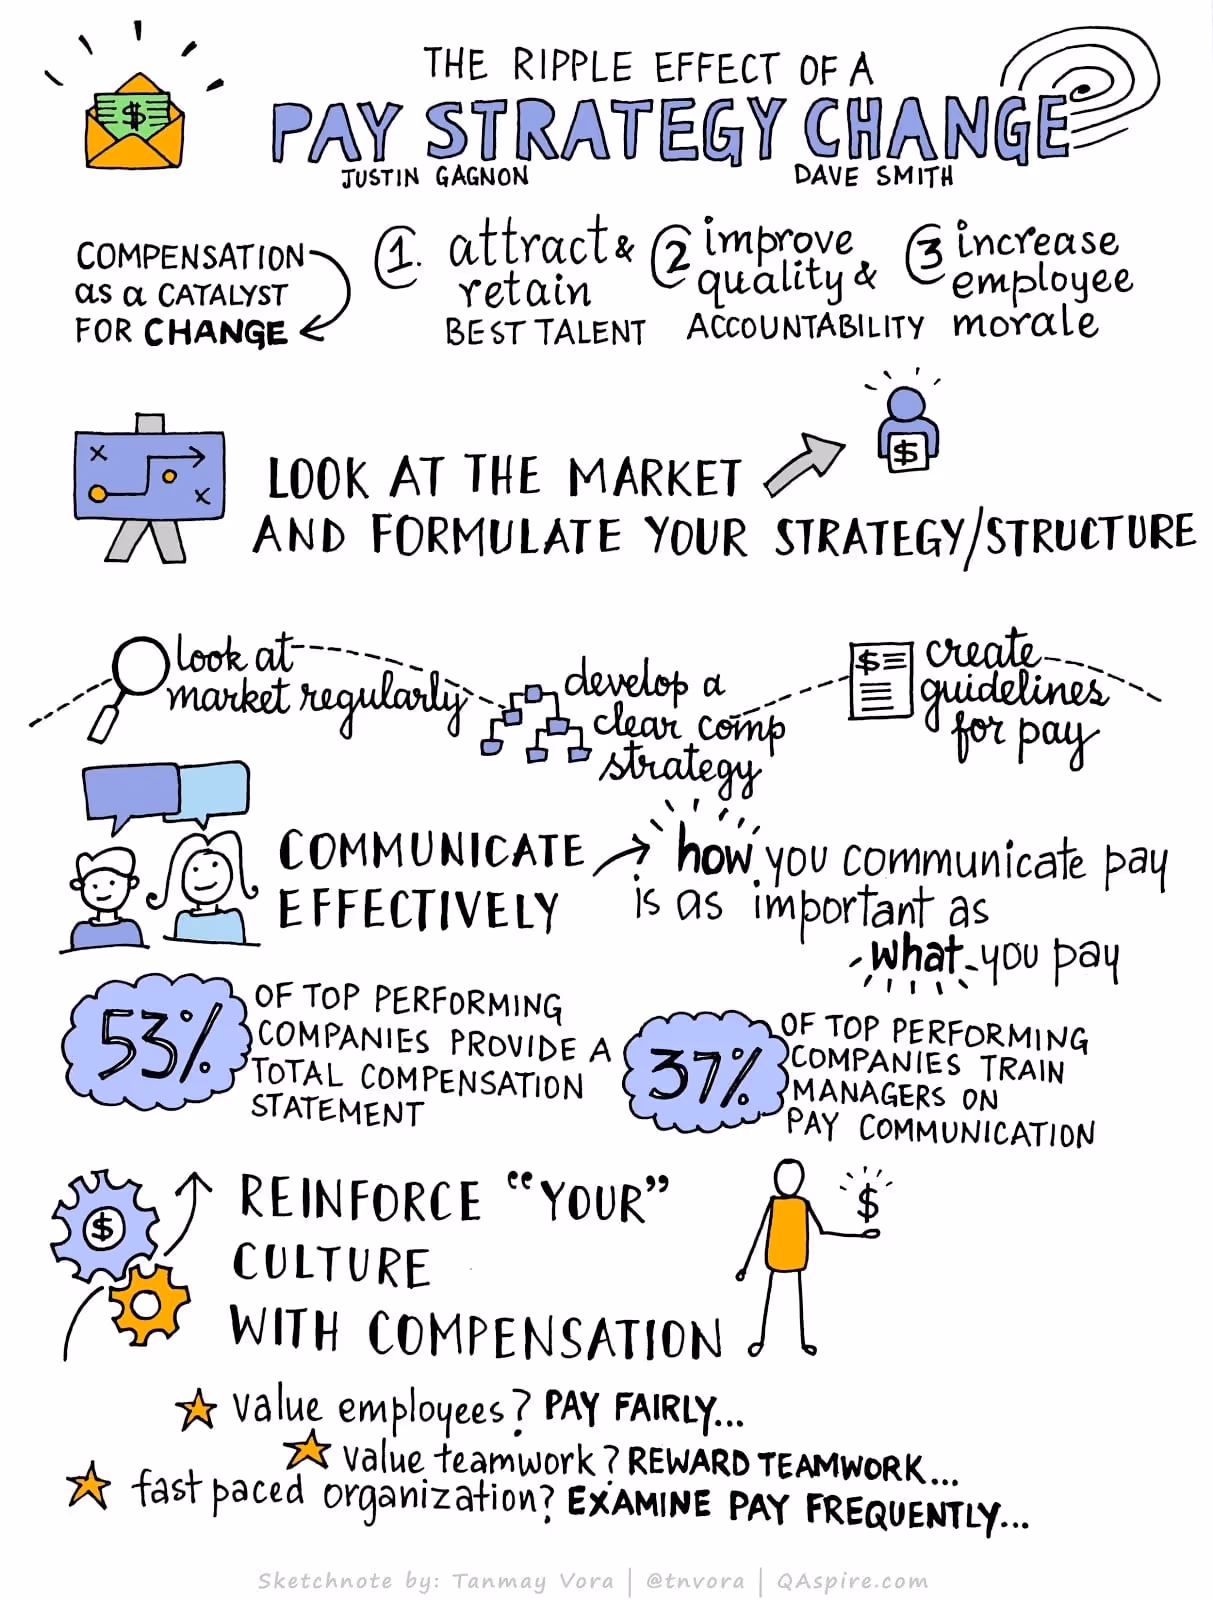 THE RIPPLE EFFECT OF A
PAY STRATEGY CHANGE
JUSTIN GAGNON
DAVE SMITH
$
COMPENSATION
as a CATALYST
FOR CHANGE
1. attract &
retain
BEST TALENT
2 improve
quality &
ACCOUNTABILITY
3 increase
employee
morale
$
LOOK AT THE MARKET
AND FORMULATE YOUR STRATEGY/STRUCTURE
look at
market regularly
develop a
clear comp
strategy
$
create
guidelines
for pay
COMMUNICATE
EFFECTIVELY
how you communicate pay
is as important as
what you pay
53%
OF TOP PERFORMING
COMPANIES PROVIDE A
TOTAL COMPENSATION
STATEMENT
37%
OF TOP PERFORMING
COMPANIES TRAIN
MANAGERS ON
PAY COMMUNICATION
$
REINFORCE “YOUR”
CULTURE
WITH COMPENSATION
$
value employees? PAY FAIRLY...
value teamwork? REWARD TEAMWORK...
fast paced organization? EXAMINE PAY FREQUENTLY...
Sketchnote by: Tanmay Vora | @tnvora | QAspire.com